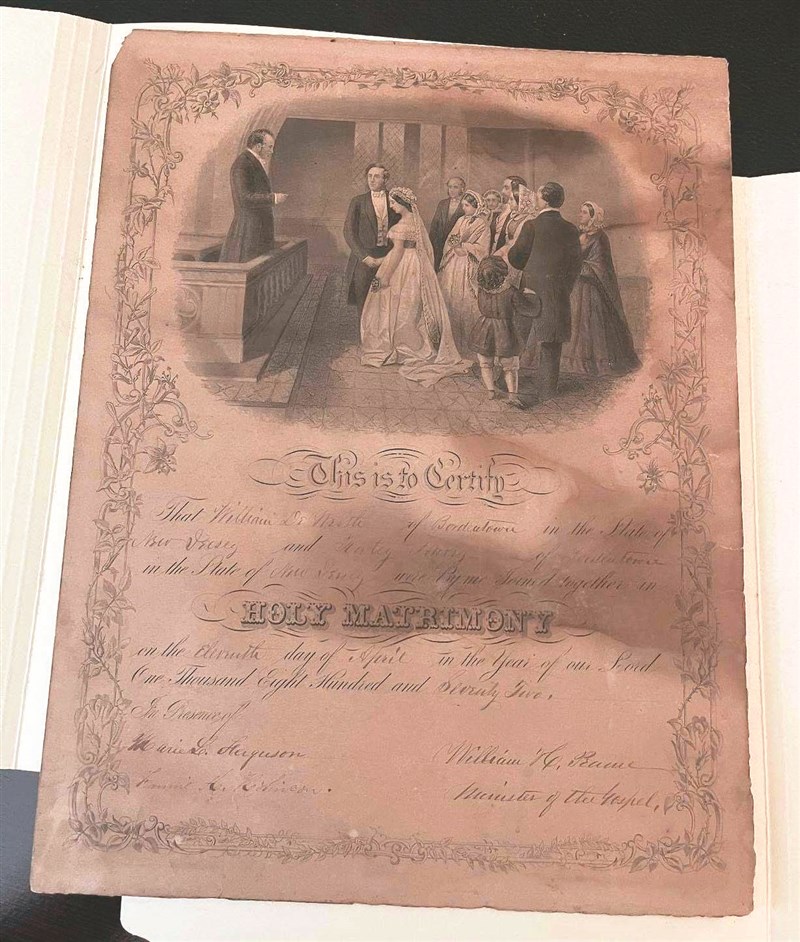 This is to Certify
That William of Bordentown in the State of
New Jersey and of Bordentown
in the State of New Jersey were By me Joined together in
HOLY MATRIMONY
on the eleventh day of April in the Year of our Lord
One Thousand Eight Hundred and Seventy Two.
In Presence of
Marie L. Ferguson
William H.
Robinson.
Minister of the Gospel,